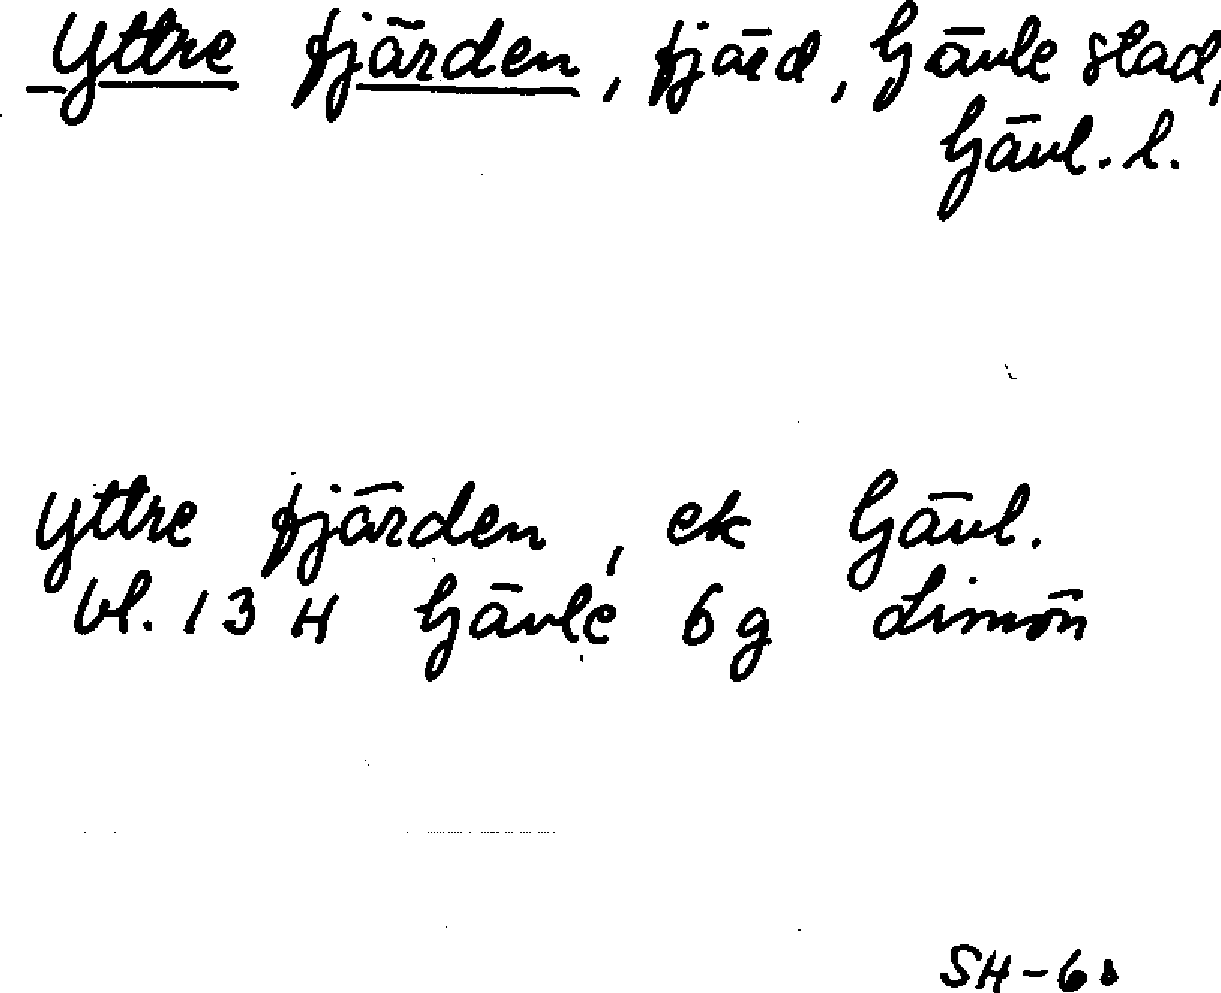 Yttre fjärden, fjärd, Gävle stad,
Gävl. l.
Yttre fjärden, ek Gävl.
bl. 13 H Gävle 6 g Limön
SH-60